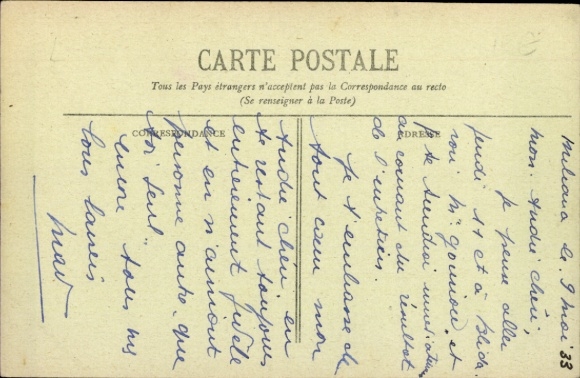 CARTE POSTALE
Tous les Pays étrangers n'acceptent pas la Correspondance au recto
(Se renseigner à la Poste)
CORRESPONDANCE
ADRESSE
Miliana le 9 mai 33
mon André chéri,
Je pense aller
jeudi 11 et à Blida
voir Mr et
je te tiendrai
au courant du résultat
de l'entretien.
Je t'embrasse de
tout cœur mon
André chéri en
te restant toujours
entièrement fidèle
et en n'aimant
personne autre que
toi seul. tous mes
encore
tous baisers